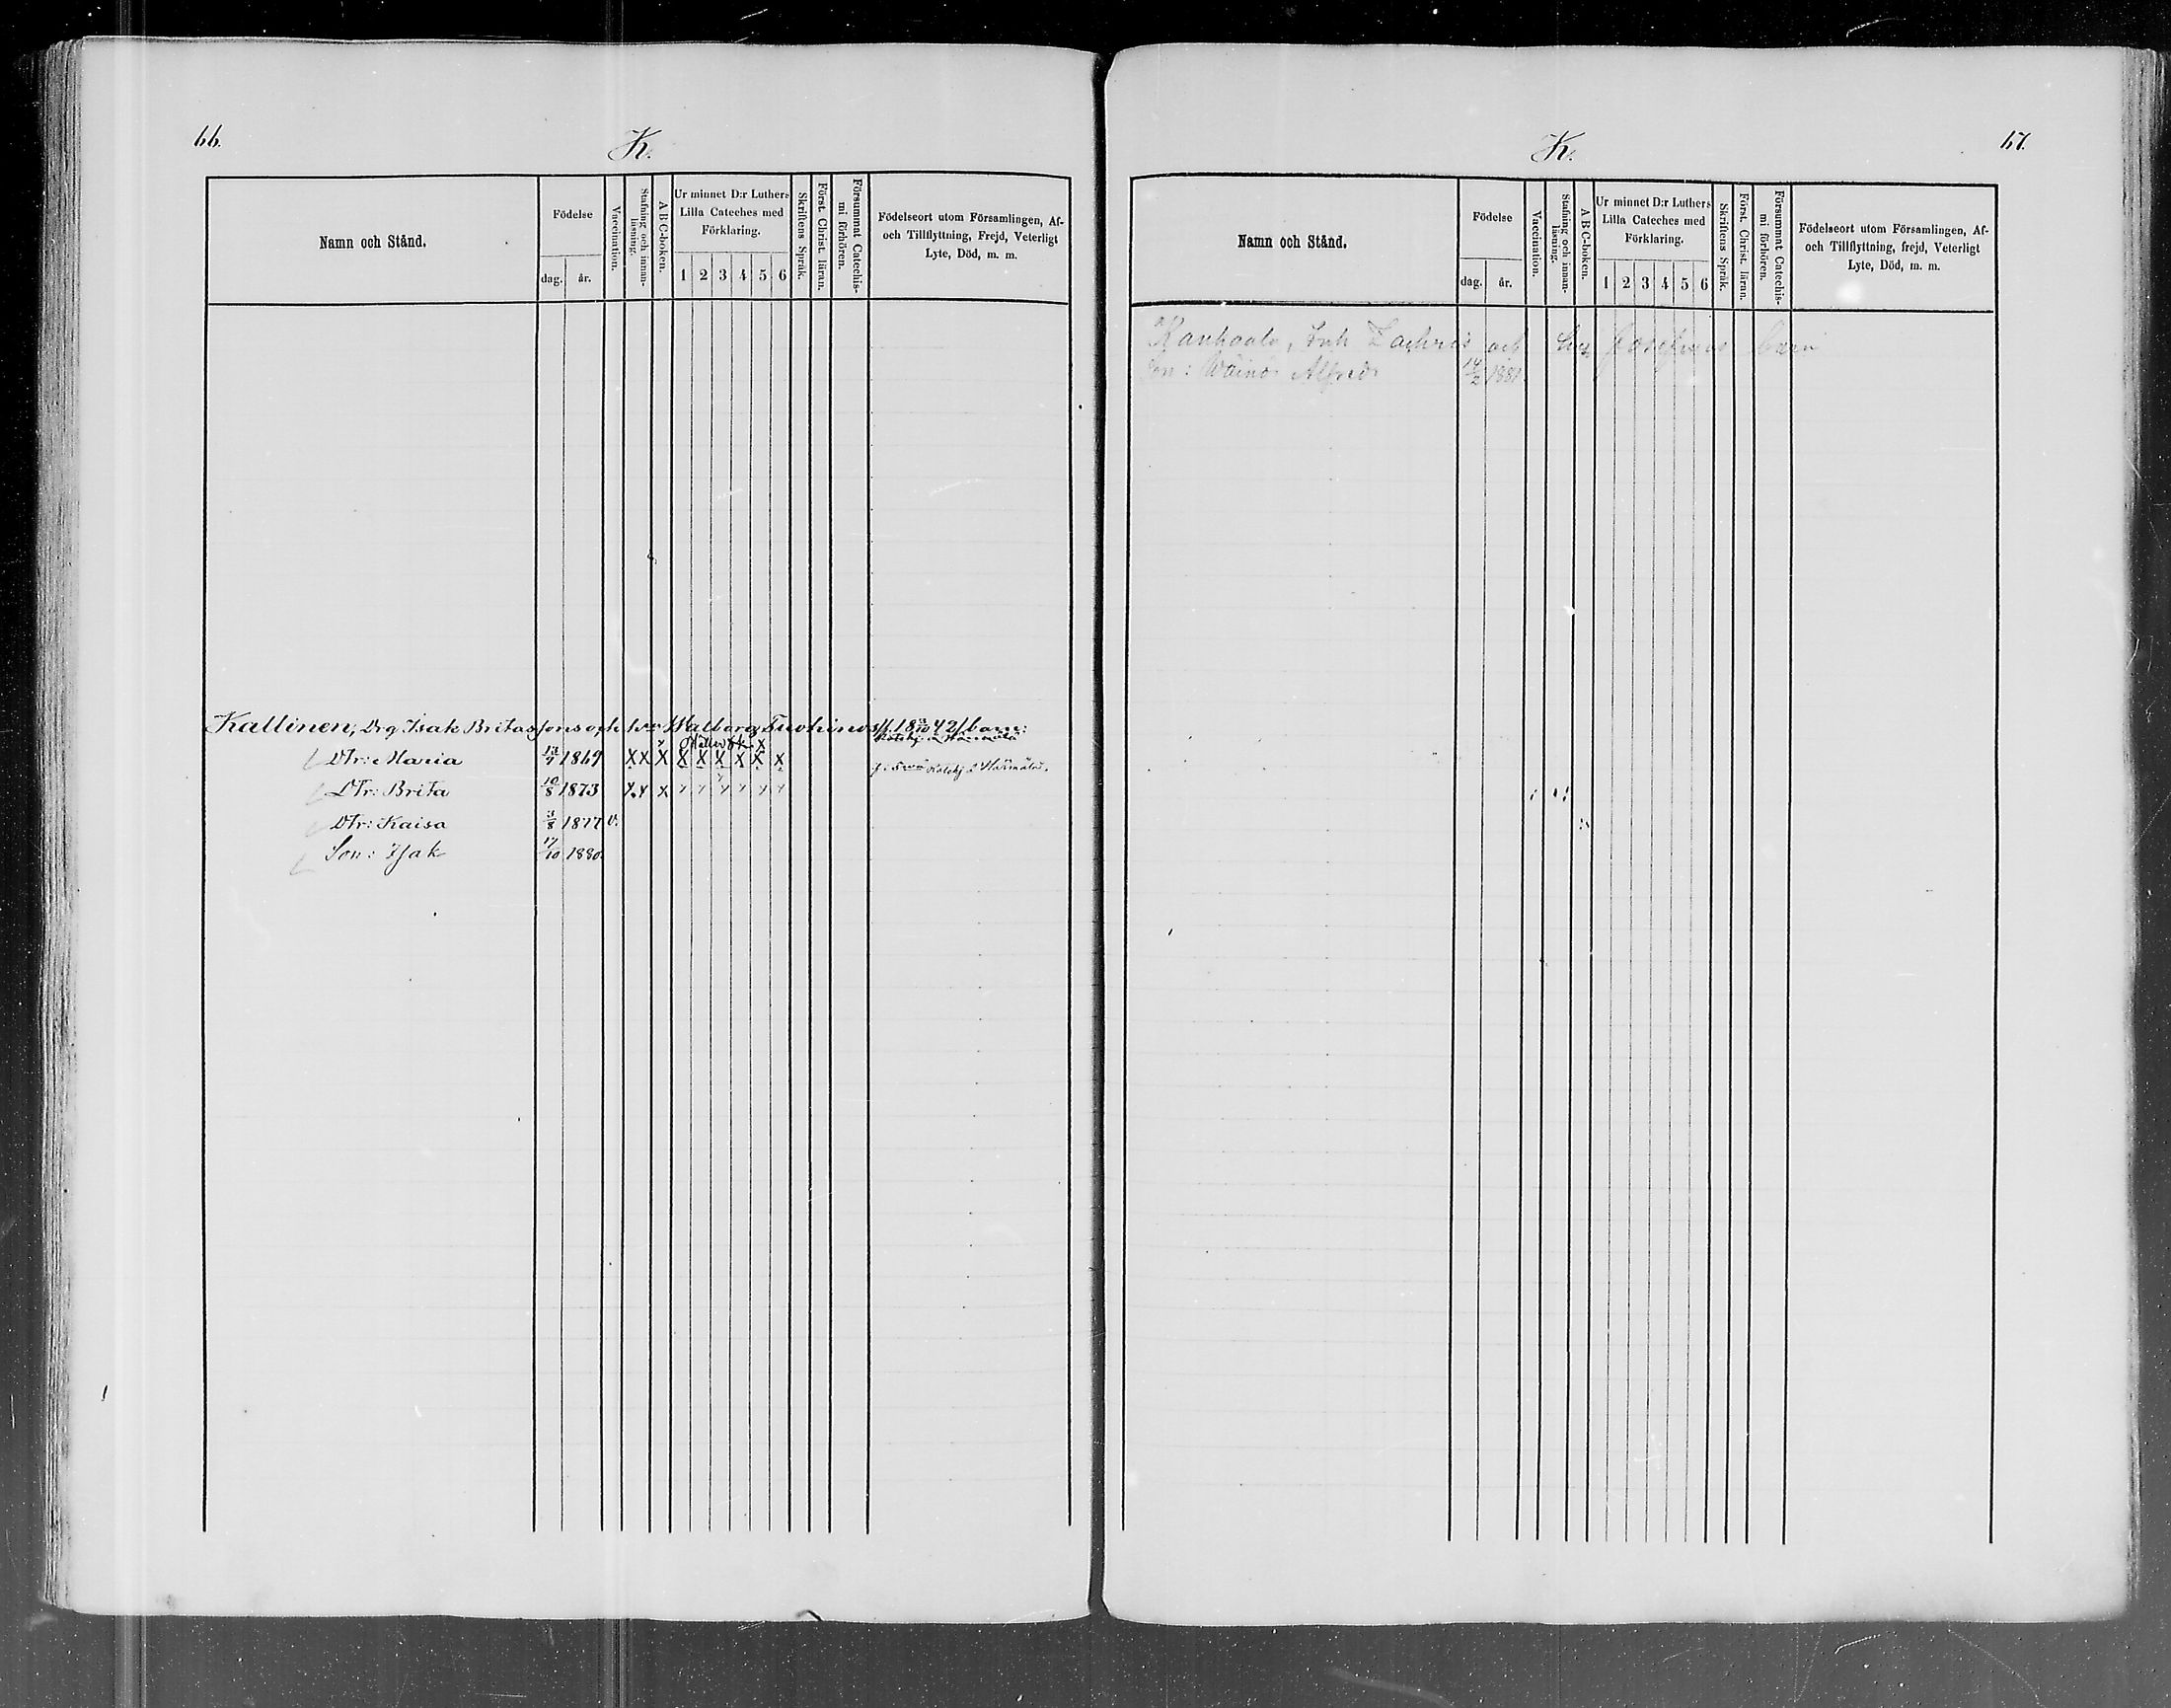 66.
K.
Namn och Stånd.
Födelse
dag.
år.
Vaccination.
Stafning och innan-
läsning.
A B C-boken.
Ur minnet D:r Luthers
Lilla Cateches med
Förklaring.
1 2 3 4 5 6
Skriftens Språk.
Först. Christ. läran.
Försummat Catechis-
mi förhören.
Födelseort utom Församlingen, Af-
och Tillflyttning, Frejd, Veterligt
Lyte, Död, m. m.
Kallinen, Drg Isak Britas
barn:
Dtr: Maria 1869 X X X X X X X X X
Dtr: Brita 10/8 1873
Dtr: Kaisa 3/8 1877 v.
Son: Isak 17/10 1880.
K.
67.
Namn och Stånd.
Födelse
dag.
år.
Vaccination.
Stafning och innan-
läsning.
A B C-boken.
Ur minnet D:r Luthers
Lilla Cateches med
Förklaring.
1 2 3 4 5 6
Skriftens Språk.
Först. Christ. läran.
Försummat Catechis-
mi förhören.
Födelseort utom Församlingen, Af-
och Tillflyttning, frejd, Veterligt
Lyte, Död, m. m.
Zachris och barn
Son: Wäinö Alfred 14/2 1881